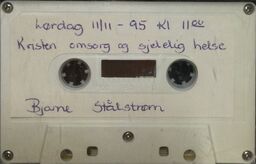 Lørdag 11/11 - 95 Kl 11⁰⁰
Kristen omsorg og sjelelig helse
Bjarne Stålstrøm